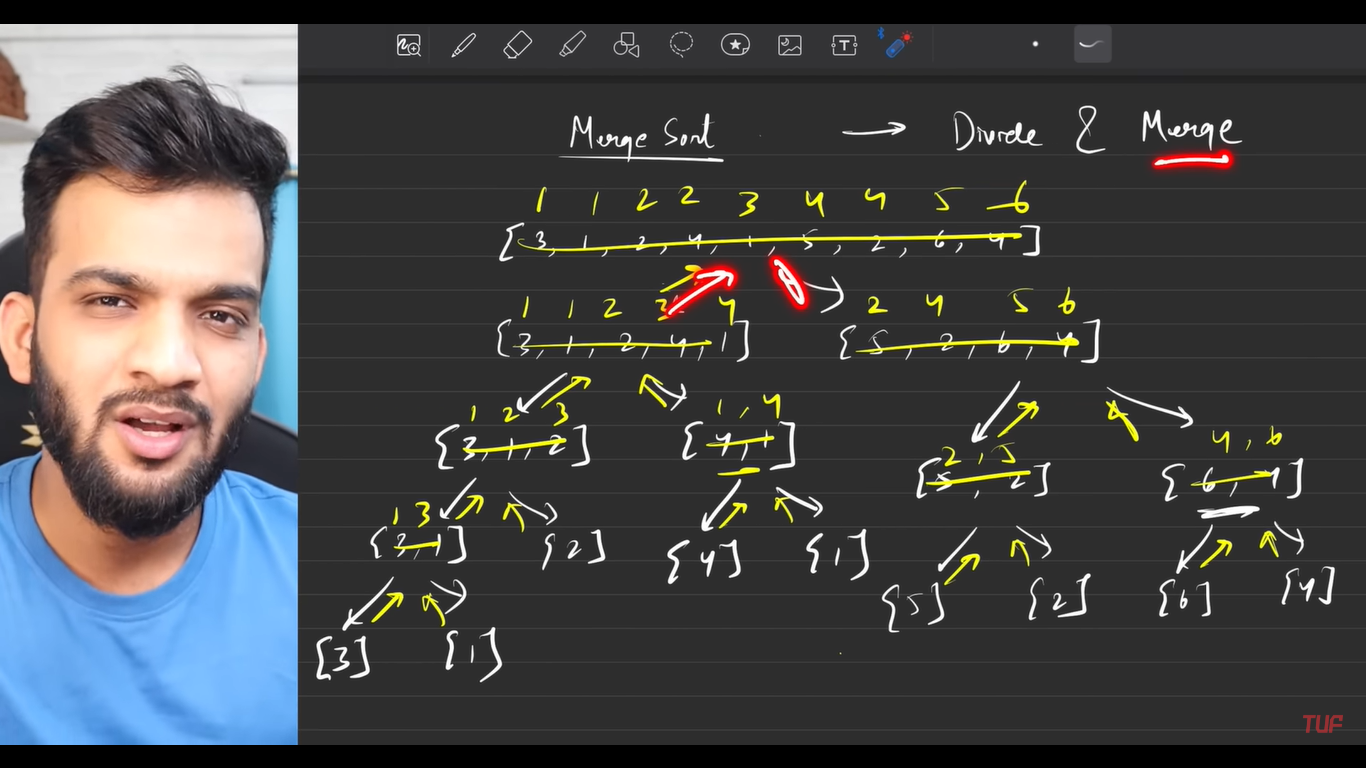 Merge Sort → Divide & Merge
1 1 2 2 3 4 4 5 6
[3, 1, 2, 4, 1, 5, 2, 6, 4]
1 1 2 3 4 2 4 5 6
[3, 1, 2, 4, 1] [5, 2, 6, 4]
1 2 3 1, 4
[3, 1, 2] [4, 1]
2, 5 4, 6
[5, 2] [6, 4]
1 3
[3, 1] [2] [4] [1]
[5] [2] [6] [4]
[3] [1]
T
TUF